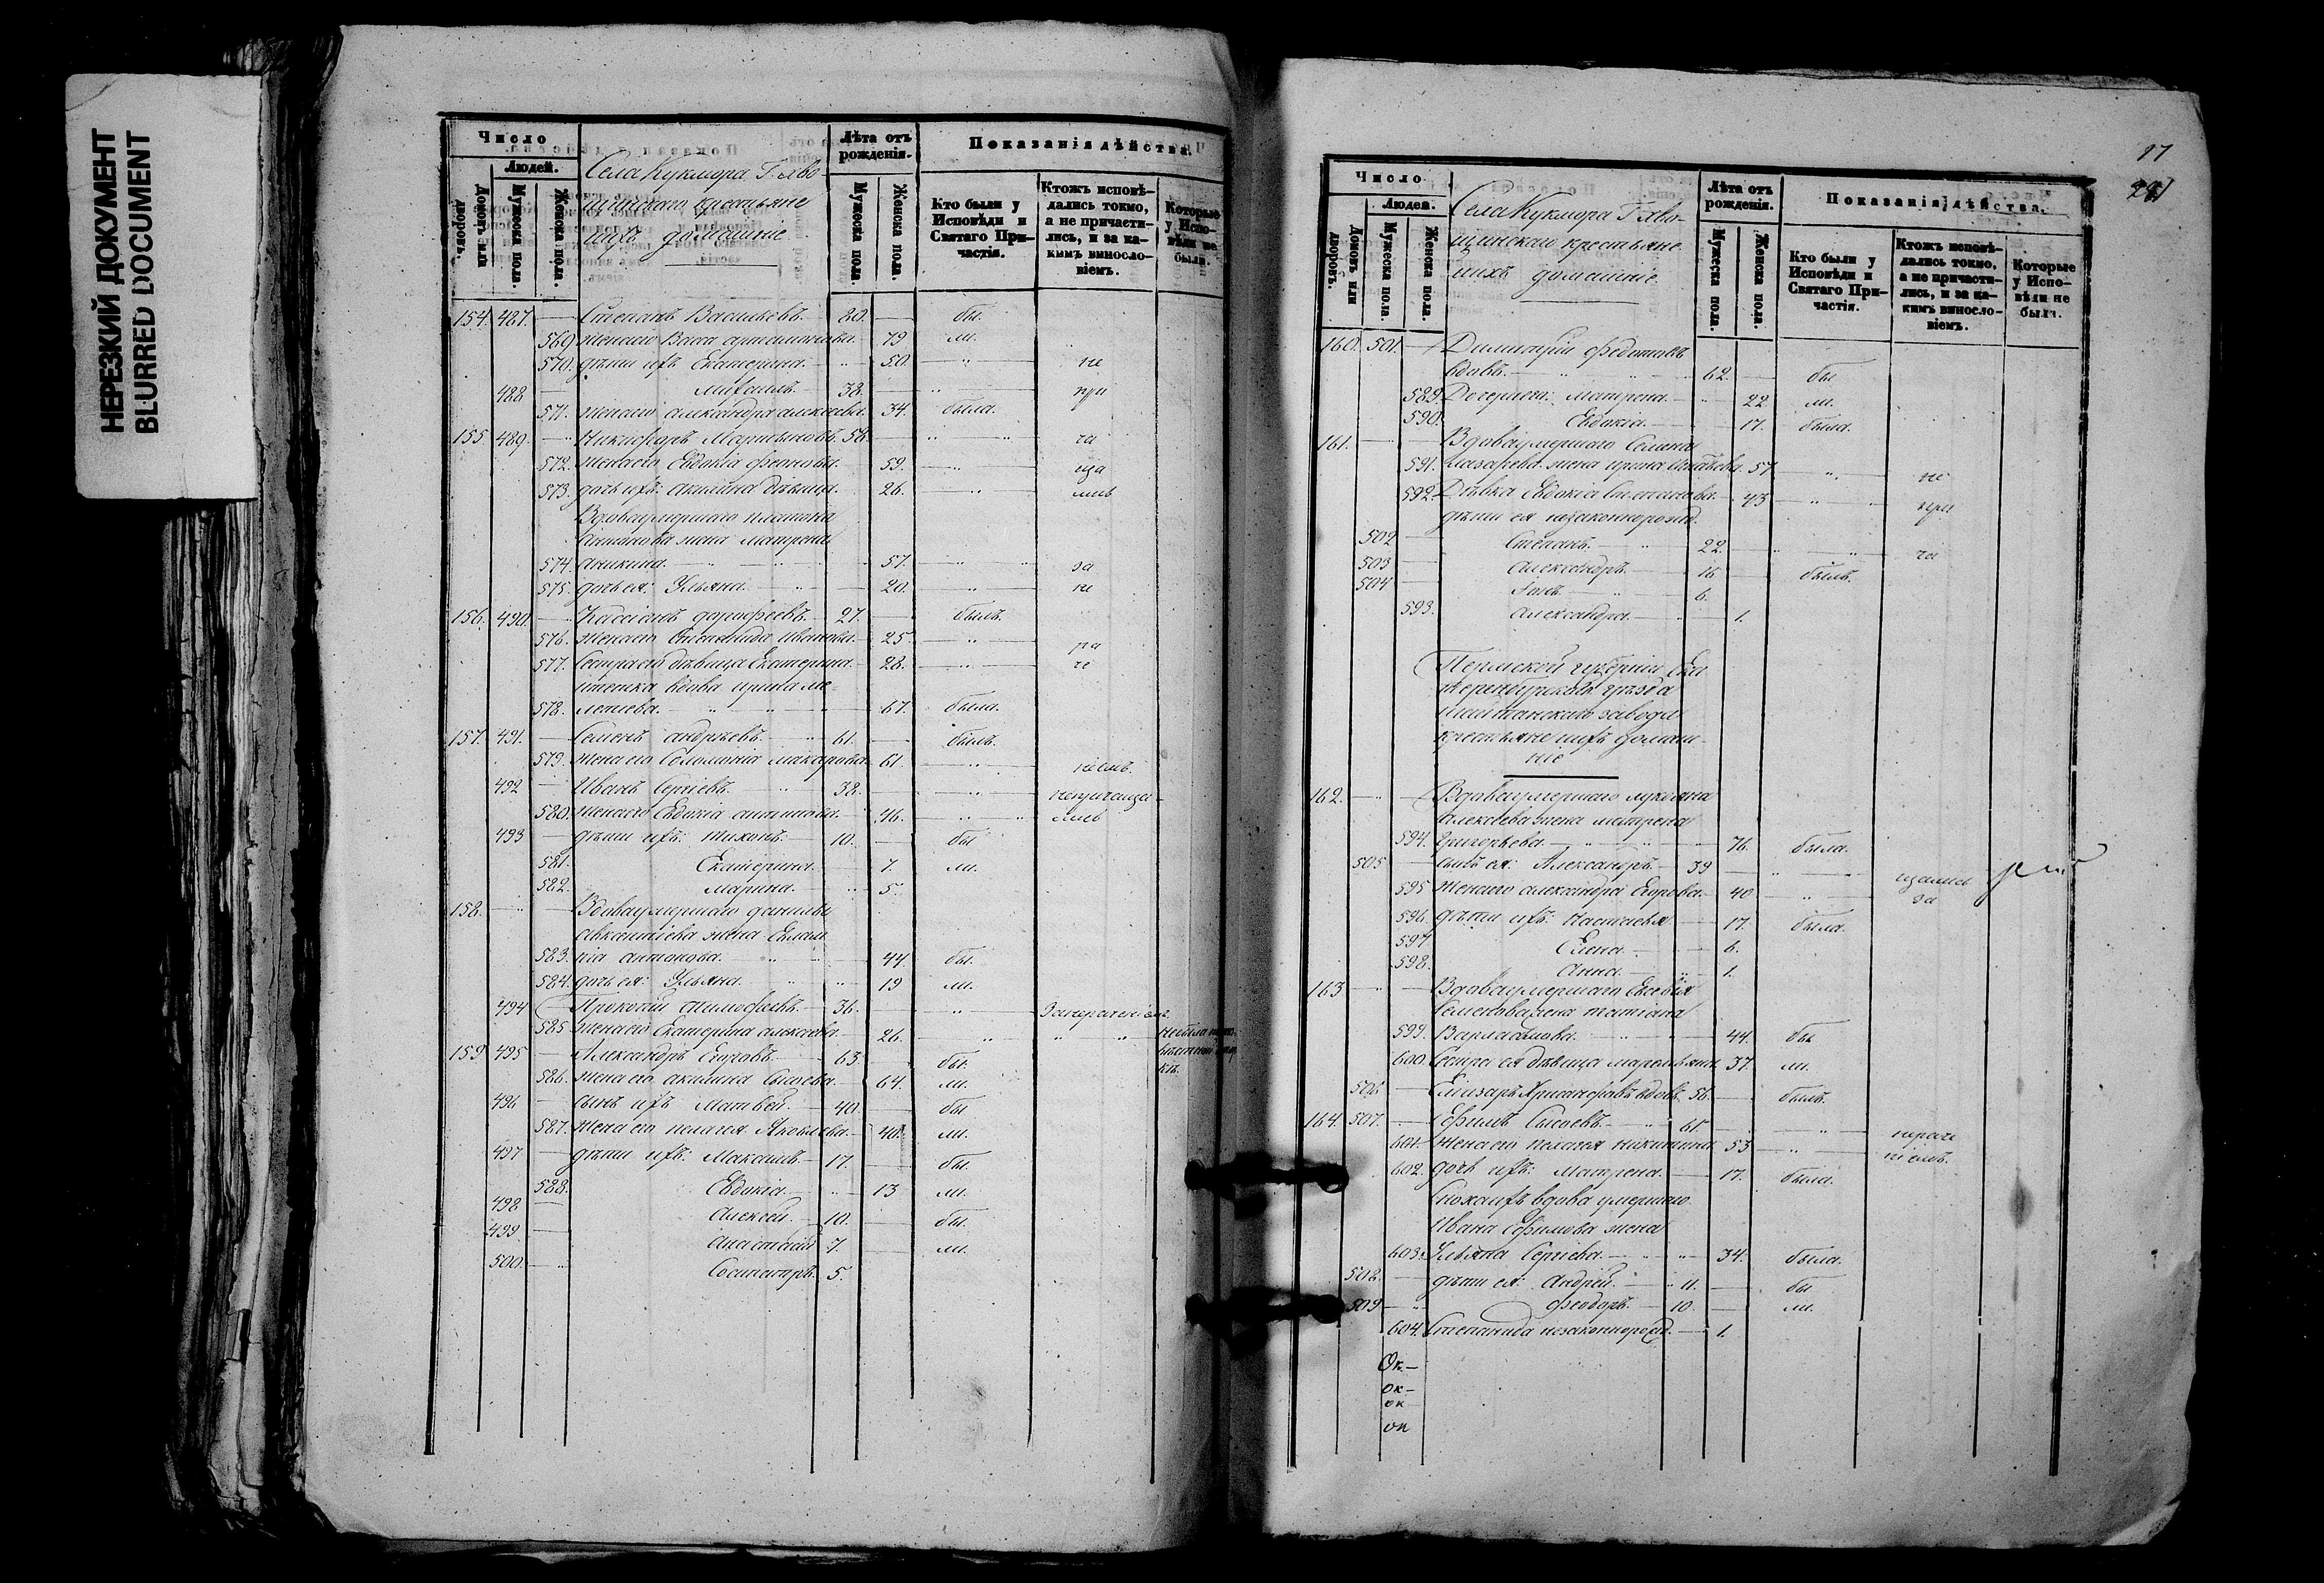 НЕРЕЗКИЙ ДОКУМЕНТ
BLURRED DOCUMENT
Число
Людей.
Домовъ или дворовъ.
Мужеска пола.
Женска пола.
Села Кукмора Г.
крестьяне
ихъ домашніе
Лѣта отъ рожденія.
Мужеска пола.
Женска пола.
Показанія дѣйства.
Кто были у Исповѣди и Святаго Причастія.
Ктожъ исповѣдались токмо, а не причастились, и за какимъ винословіемъ.
Которые у Исповѣди не были.
154. 487. — Степанъ Васильевъ. — 80. — бы
569 жена его Васса 79 ли.
570. дѣти ихъ Екатерина. — 50. не
488 Михаилъ. — 38. — при
571. жена его александра алексѣева. 34. была.
155 489. — Никифоръ Мартыновъ. 58 — ча
572. жена его Евдокія 59. ща
573. дочь ихъ: акилина дѣвица. 26. лись
Вдова умершаго платона
жена матрена
574. аникина. 57. за
575. дочь ея: Ульяна. — 20. не
156. 490. — Кассіанъ дорофеевъ. — 27. — былъ.
576. жена его Степанида иванова. 25. ра
577. Сестра его дѣвица Екатерина. — 28. че
вдова ирина
578. 67. была.
157. 491. — Семенъ андреевъ. 61. — былъ.
579. жена его Соломонія макарова 61.
492 — Иванъ Сергіевъ. 38. —
580. жена его Евдокія 46. лись
493 — дѣти ихъ: тихонъ. — 10. — бы
581. Екатерина. — 7. ли.
582. Марина. — 5.
158. — Вдова умершаго данилы
авксентіева жена Евлам
583. пія антонова. 44. бы.
584. дочь ея: Ульяна. 19 ли.
494 Прокопій тимофеевъ. — 36. —
585. жена его Екатерина алексѣева 26.
159 495 — Александръ Егоровъ. — 63. — бы.
586. жена его акилина Сысоева. — 64. ли.
496 — сынъ ихъ Матвей. — 40. — бы
587. жена его пелагея Яковлева. 40. ли.
497 — дѣти ихъ: Максимъ. — 17. — бы.
588. Евдокія. — 13 ли.
498 — Алексей. — 10. — бы.
499. — 7. — ли.
500. — Сосипатръ. 5.
17
Число
Людей.
Домовъ или дворовъ.
Мужеска пола.
Женска пола.
Села Кукмора Г.
крестьяне
ихъ домашніе
Лѣта отъ рожденія.
Мужеска пола.
Женска пола.
Показанія дѣйства.
Кто были у Исповѣди и Святаго Причастія.
Ктожъ исповѣдались токмо, а не причастились, и за какимъ винословіемъ.
Которые у Исповѣди не были.
160. 501. — Димитрій Федотовъ
вдовъ. — 62. — бы
589. Дочери его: Матрена. — 22 ли.
590. Евдокія. — 17. была.
161. — Вдова умершаго Семена
591. Лазарева жена ирина 57 не
592. Дѣвка Евдокія Степанова. — 43 при
дѣти ея незаконнорожд.
502 — Степанъ. — 22. — ча
503 — Александръ. — 16 — былъ.
504 — 6.
593. Александра. — 1.
Пермской губерніи Ека
теринбурскаго уѣзда
Шайтанскаго завода
крестьяне ихъ домаш
ніе
162. — Вдова умершаго
алексѣева жена матрена
594. Григорьева. — 76. была.
505 — сынъ ея: Александръ. — 39 — щались
595 жена его александра Егорова. — 40 за
596. дѣти ихъ: Настасья — 17. была.
597 Елена. — 6.
598. Анна. — 1.
163 — Вдова умершаго Евсевія
Семенова жена татіана
599. Варламова. — 44. бы
600. Сестра ея дѣвица 37. ли.
506 — вдовъ. 56. — былъ.
164. 507. — Ефимъ Сысоевъ. — 61. —
601. жена его пелагея никитина 53
602. дочь ихъ: Матрена. — 17. была.
Сноха ихъ вдова умершаго
Ивана Ефимова жена
603. Ульяна Сергіева. — 34. была.
508. — дѣти ея: Андрей. — 11. — бы
509 — Феодоръ. — 10. — ли.
604. Степанида незаконнорожд. — 1.
Ок—
ок—
ок
ок